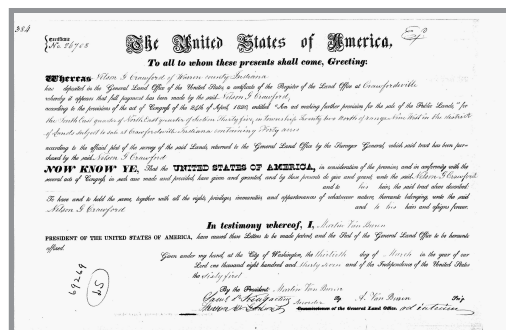 384
Certificate
No. 26708
The United States of America,
To all to whom these presents shall come, Greeting:
Whereas Nelson G Crawford of Warren county Indiana
has deposited in the General Land Office of the United States, a certificate of the Register of the Land Office at Crawfordsville
whereby it appears that full payment has been made by the said Nelson G Crawford,
according to the provisions of the act of Congress of the 24th of April, 1820, entitled "An act making further provision for the sale of the Public Lands," for
the South East quarter of North East quarter of Section Thirty five, in Township Twenty two North of range Nine West in the district
of Lands subject to sale at Crawfordsville Indiana containing Forty acres
according to the official plat of the survey of the said Lands, returned to the General Land Office by the Surveyor General, which said tract has been pur-
chased by the said Nelson G Crawford
NOW KNOW YE, That the UNITED STATES OF AMERICA, in consideration of the premises, and in conformity with the
several acts of Congress, in such case made and provided, have given and granted, and by these presents do give and grant, unto the said Nelson G Crawford
and to his heirs, the said tract above described:
To have and to hold the same, together with all the rights, privileges, immunities, and appurtenances of whatsoever nature, thereunto belonging, unto the said
Nelson G Crawford and to his heirs and assigns forever.
In testimony whereof, I, Martin Van Buren
PRESIDENT OF THE UNITED STATES OF AMERICA, have caused these Letters to be made patent, and the Seal of the General Land Office to be hereunto
affixed.
Given under my hand, at the City of Washington, the thirtieth day of March in the year of our
Lord one thousand eight hundred and thirty seven and of the Independence of the United States
the sixty first
By the President: Martin Van Buren
By A. Van Buren Sec'y
Commissioner of the General Land Office. ad interim
69269